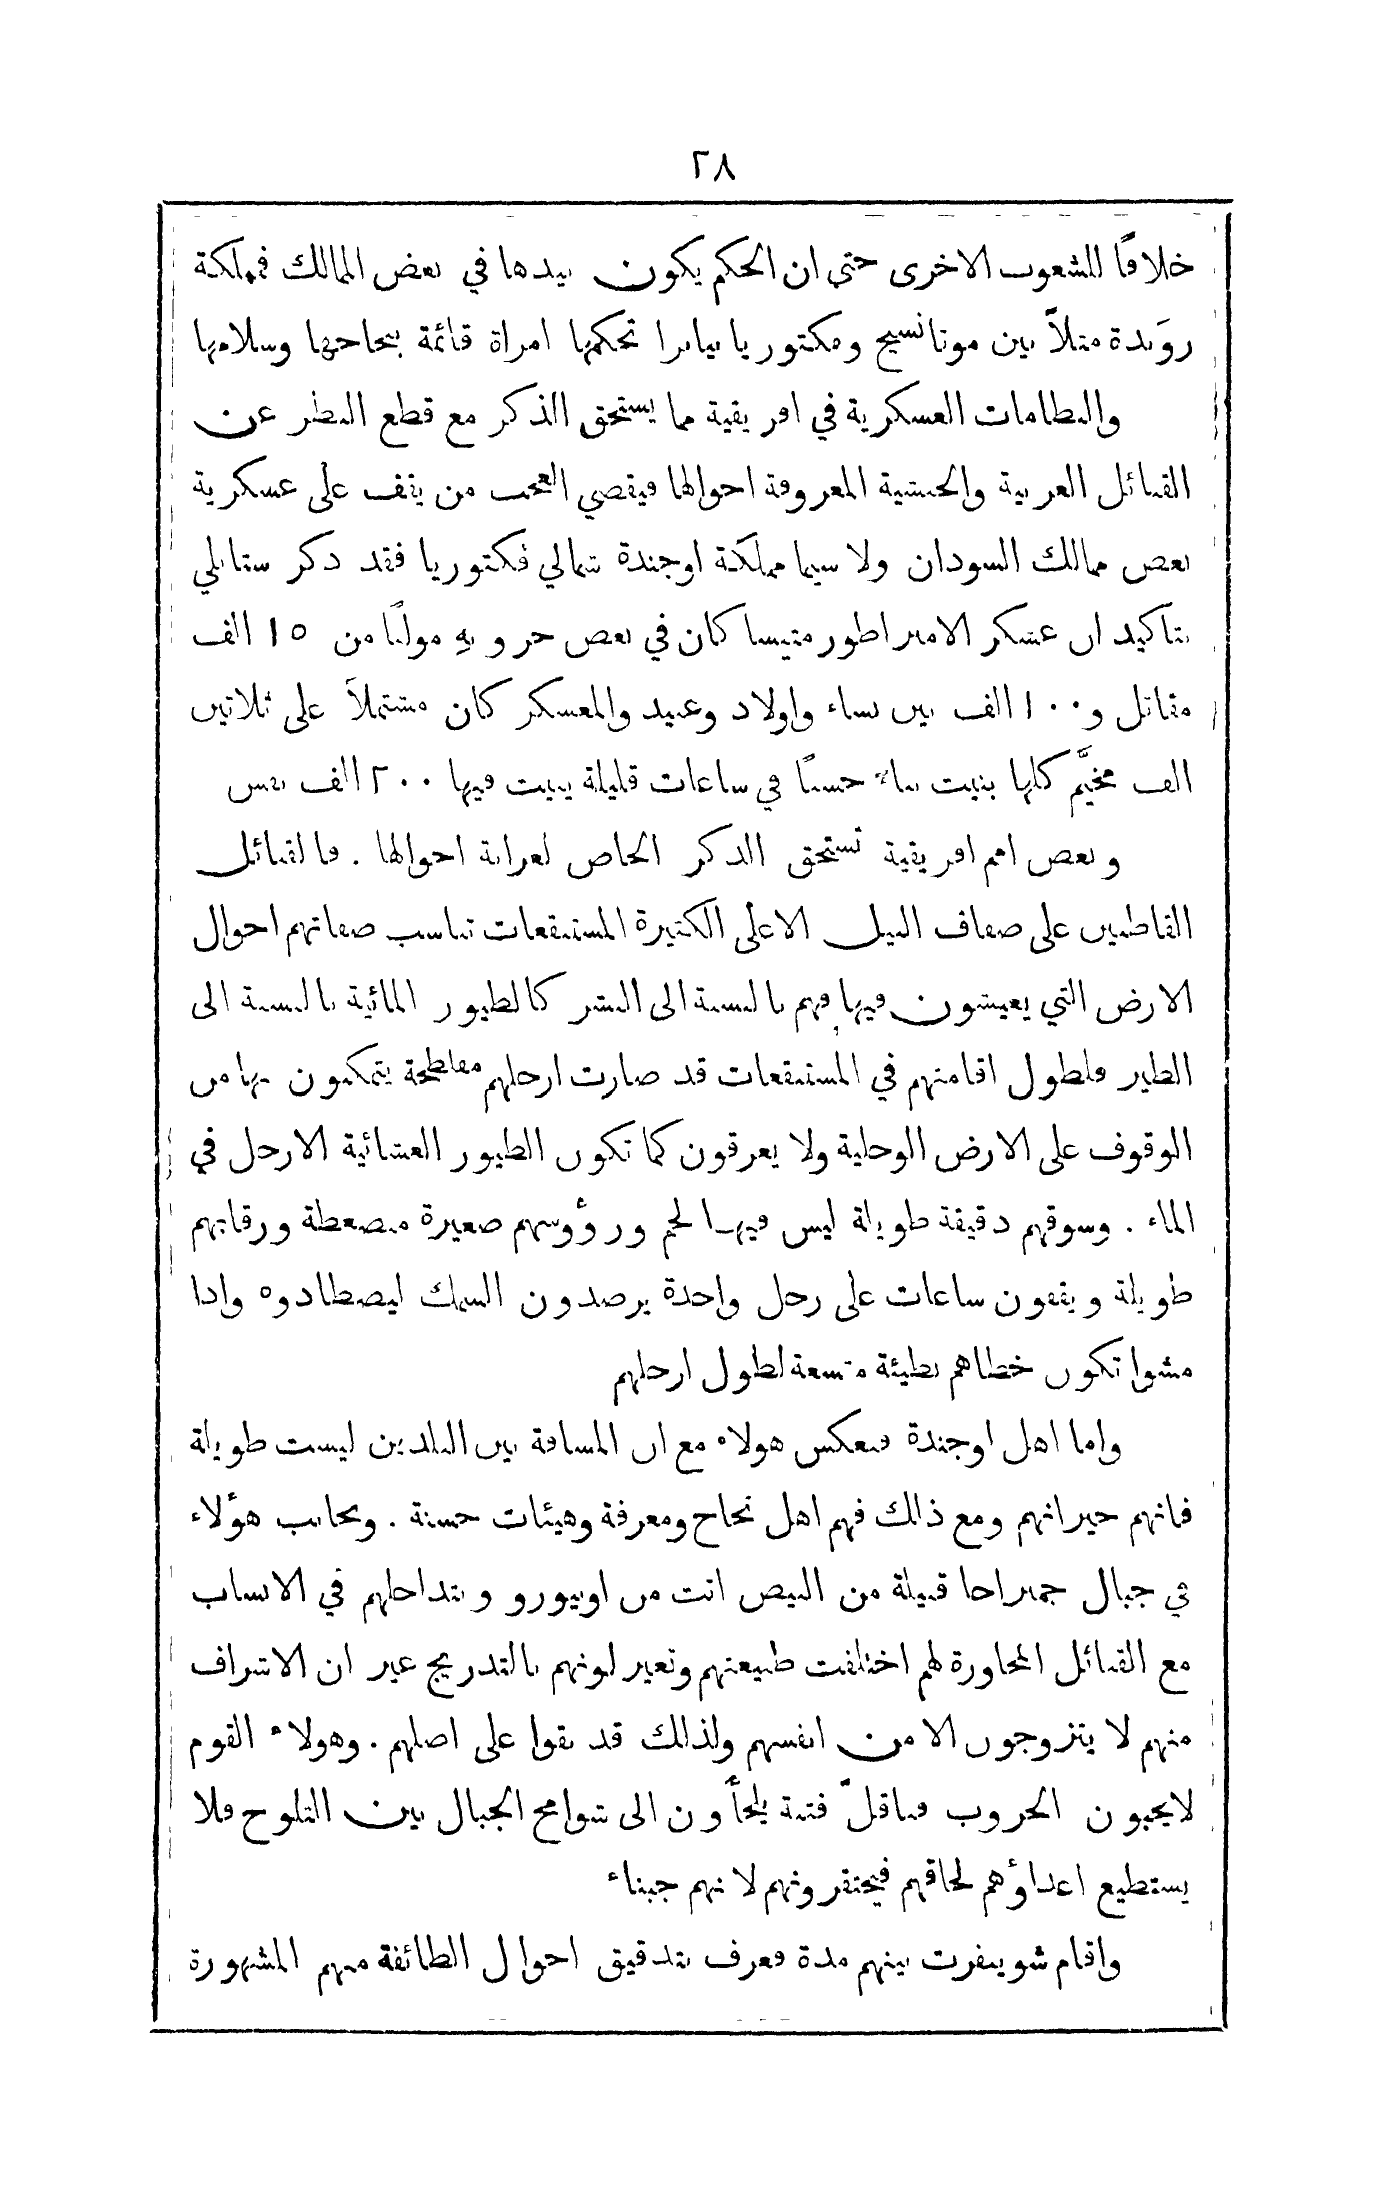 ٢٨
خلافًا للشعوب الاخرى حتى ان الحكم يكون بيدها في بعض الممالك فمملكة
روَندة مثلاً بين موتانسيج وفكتوريا نيانرا تحكمها امراة قائمة بنجاحها وسلامها
والنظامات العسكرية في افريقية مما يستحق الذكر مع قطع النظر عن
القبائل العربية والحبشية المعروفة احوالها فيقضي العجب من يقف على عسكرية
بعض ممالك السودان ولا سيما مملكة اوجندة شمالي فكتوريا فقد ذكر ستانلي
بتاكيد ان عسكر الامبراطور متيسا كان في بعض حروبهِ مولفًا من ١٥ الف
مقاتل و١٠٠ الف بين نساء واولاد وعبيد والمعسكر كان مشتملاً على ثلاثين
الف مخيَّم كلها بنيت بناء حسنًا في ساعات قليلة يبيت فيها ٢٠٠ الف نفس
وبعض امم افريقية تستحق الذكر الخاص لغرابة احوالها . فالقبائل
القاطنين على ضفاف النيل الاعلى الكثيرة المستنقعات تناسب صفاتهم احوال
الارض التي يعيشون فيها فهم بالنسبة الى البشر كالطيور المائية بالنسبة الى
الطير فلطول اقامتهم في المستنقعات قد صارت ارجلهم مفلطحة يتمكنون بها من
الوقوف على الارض الوحلية ولا يغرقون كما تكون الطيور الغشائية الارجل في
الماء . وسوقهم دقيقة طويلة ليس فيها لحم ورؤُوسهم صغيرة منضغطة ورقابهم
طويلة ويقفون ساعات على رجل واحدة يرصدون السمك ليصطادوه واذا
مشوا تكون خطاهم بطيئة متسعة لطول ارجلهم
واما اهل اوجندة فبعكس هولاء مع ان المسافة بين البلدين ليست طويلة
فانهم جيرانهم ومع ذالك فهم اهل نجاح ومعرفة وهيئات حسنة . وبجانب هؤلاء
في جبال جمبراجا قبيلة من البيض اتت من اونيورو وبتداخلهم في الانساب
مع القبائل المجاورة لهم اختلفت طبيعتهم وتغير لونهم بالتدريج غير ان الاشراف
منهم لا يتزوجون الا من انفسهم ولذلك قد بقوا على اصلهم . وهولاء القوم
لايحبون الحروب فباقلّ فتنة يلجأون الى شوامخ الجبال بين الثلوج فلا
يستطيع اعداؤهم لحاقهم فيحتقرونهم لانهم جبناء
واقام شوينفرت بينهم مدة فعرف بتدقيق احوال الطائفة منهم المشهورة